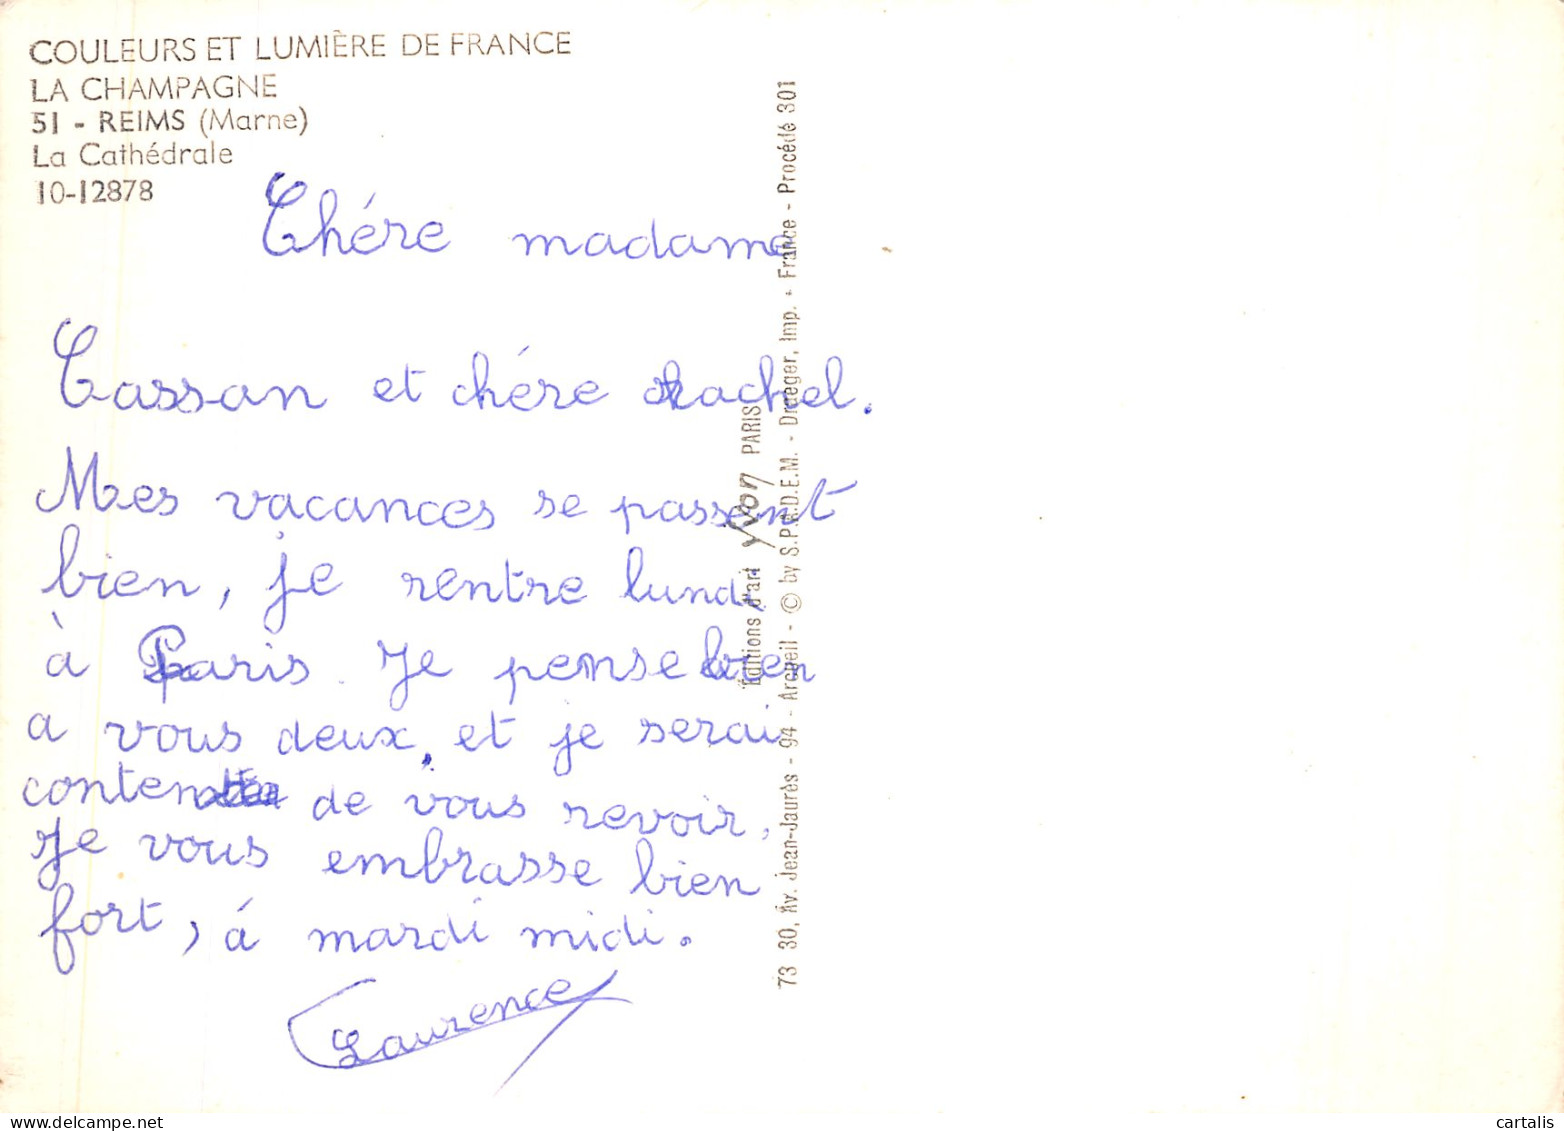 COULEURS ET LUMIÈRE DE FRANCE
LA CHAMPAGNE
51 - REIMS (Marne)
La Cathédrale
10-12878
Chére madame
Cassan et chére Rachel.
Mes vacances se passent
bien, je rentre lundi
à Paris. Je pense bien
a vous deux, et je serai
contente de vous revoir.
Je vous embrasse bien
fort, á mardi midi.
Laurence
Éditions d'art Yvon PARIS
73 30, Av. Jean-Jaurès - 94 - Arcueil - © by S.P.A.D.E.M. - Draeger, Imp. - France - Procédé 301
cartalis